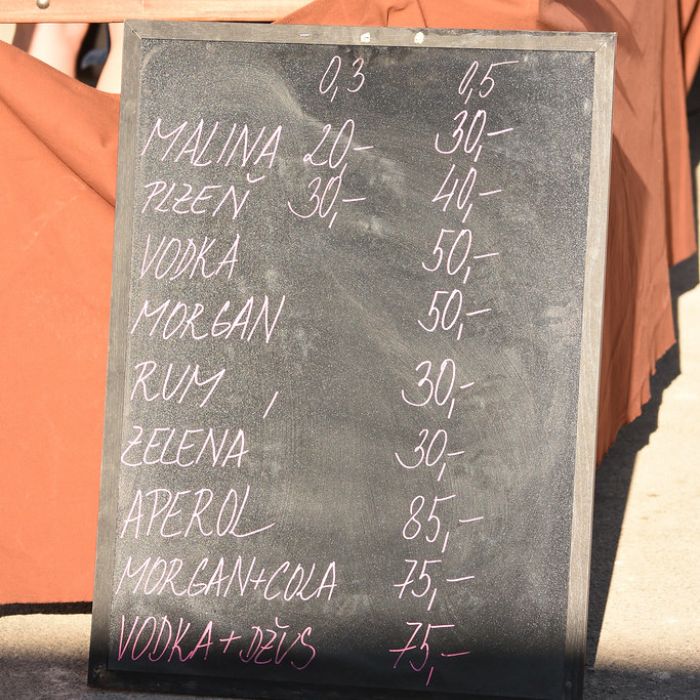 0,3 0,5
MALINA 20,- 30,-
PLZEŇ 30,- 40,-
VODKA 50,-
MORGAN 50,-
RUM 30,-
ZELENÁ 30,-
APEROL 85,-
MORGAN+COLA 75,-
VODKA+DŽUS 75,-